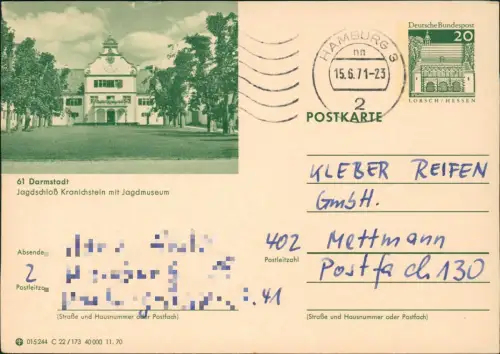 Deutsche Bundespost
20
LORSCH/HESSEN
HAMBURG 3
nn
15.6.71-23
2
POSTKARTE
61 Darmstadt
Jagdschloß Kranichstein mit Jagdmuseum
KLEBER REIFEN
GmbH.
402 Mettmann
Postleitzahl
Postfach 130
Absender
2
Postleitzahl
41
(Straße und Hausnummer oder Postfach)
(Straße und Hausnummer oder Postfach)
015244 C 22/173 40 000 11.70